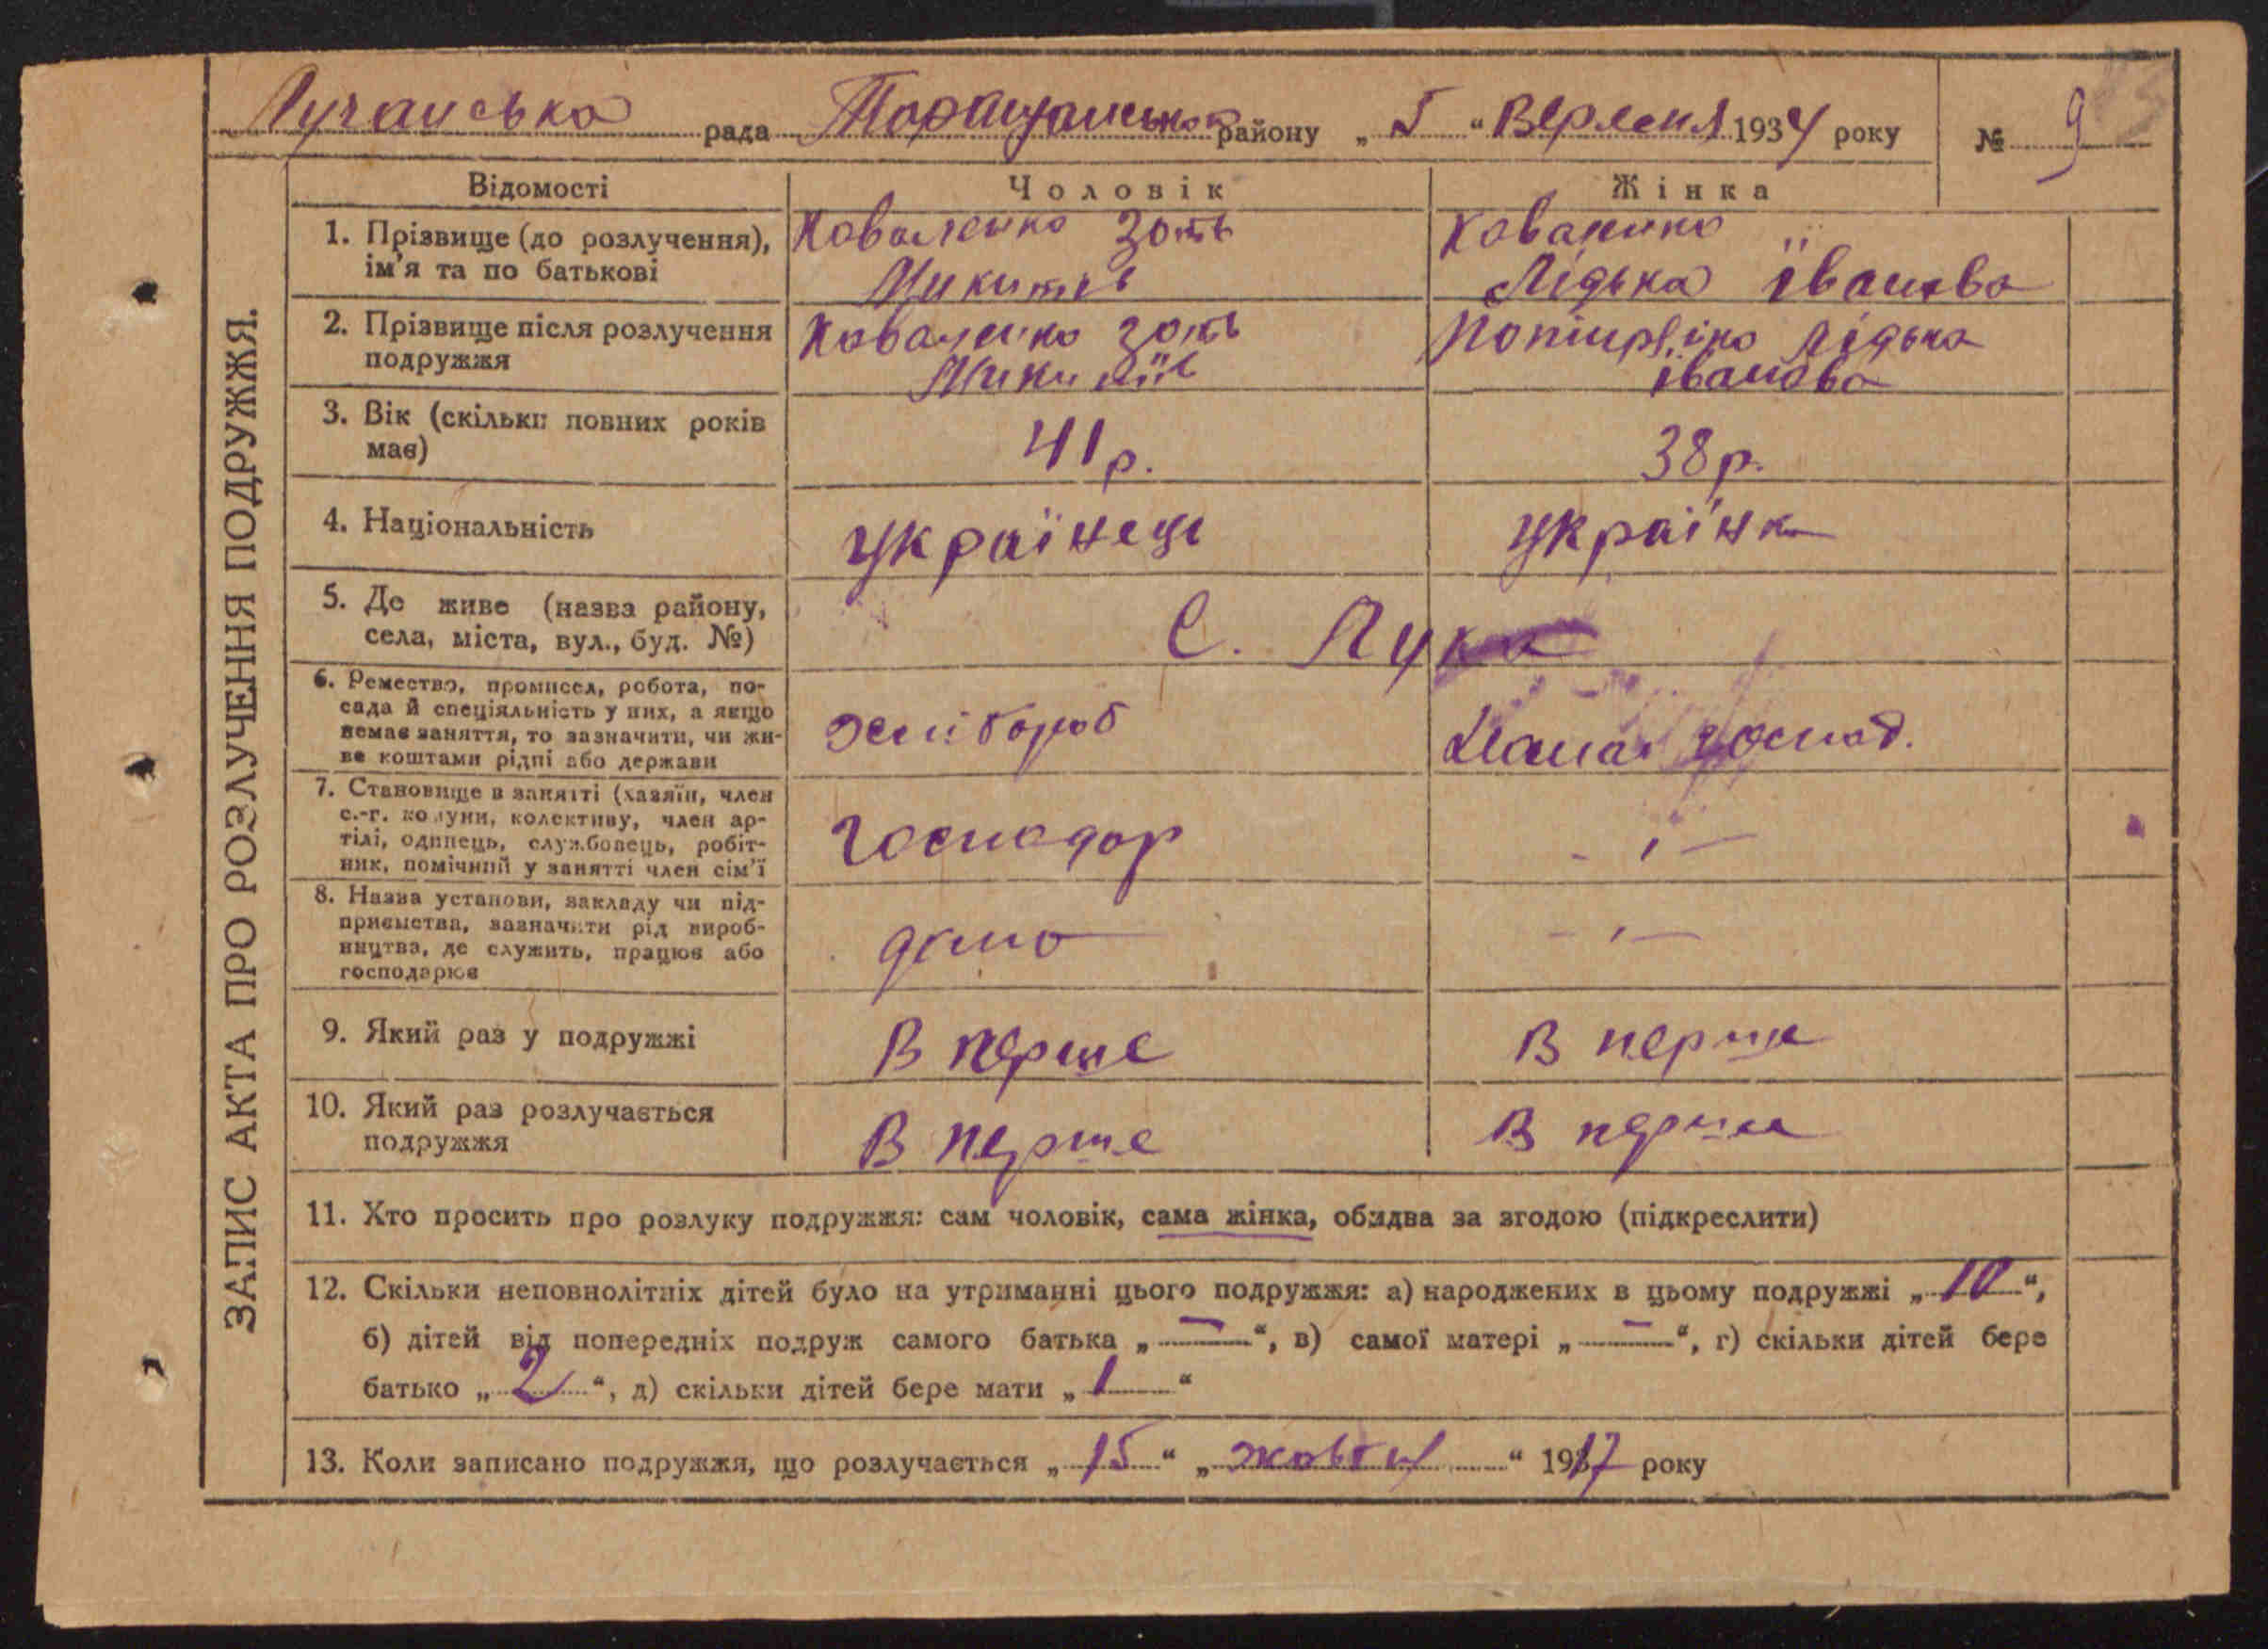 Лучанська рада району „ 5 “ Вересня 1934 року № 9
ЗАПИС АКТА ПРО РОЗЛУЧЕННЯ ПОДРУЖЖЯ.
Відомості Чоловік Жінка
1. Прізвище (до розлучення), Коваленко Зоть Коваленко
ім'я та по батькові Микитів Лідька Іванова
2. Прізвище після розлучення Коваленко Зоть Лідька
подружжя Микитів іванова
3. Вік (скільки повних років 41 р. 38 р.
має)
4. Національність українець українка
5. Де живе (назва району, С. Лука
села, міста, вул., буд. №)
6. Ремество, промисел, робота, по-
сада й спеціяльність у них, а якщо хлібороб господ.
немає заняття, то зазначити, чи жи-
ве коштами рідні або держави
7. Становище в занятті (хазяїн, член
с.-г. комуни, колективу, член ар- Господар - „ —
тілі, одинець, службовець, робіт-
ник, помічний у занятті член сім'ї
8. Назва установи, закладу чи під-
приємства, зазначити рід вироб- дома - „ —
ництва, де служить, працює або
господарює
9. Який раз у подружжі В перше В перше
10. Який раз розлучається В перше В перше
подружжя
11. Хто просить про розлуку подружжя: сам чоловік, сама жінка, обидва за згодою (підкреслити)
12. Скільки неповнолітніх дітей було на утриманні цього подружжя: а) народжених в цьому подружжі „ 10 “,
б) дітей від попередніх подруж самого батька „ — “, в) самої матері „ — “, г) скільки дітей бере
батько „ 2 “, д) скільки дітей бере мати „ 1 “
13. Коли записано подружжя, що розлучається „ 15 “ „ жовтня “ 1917 року